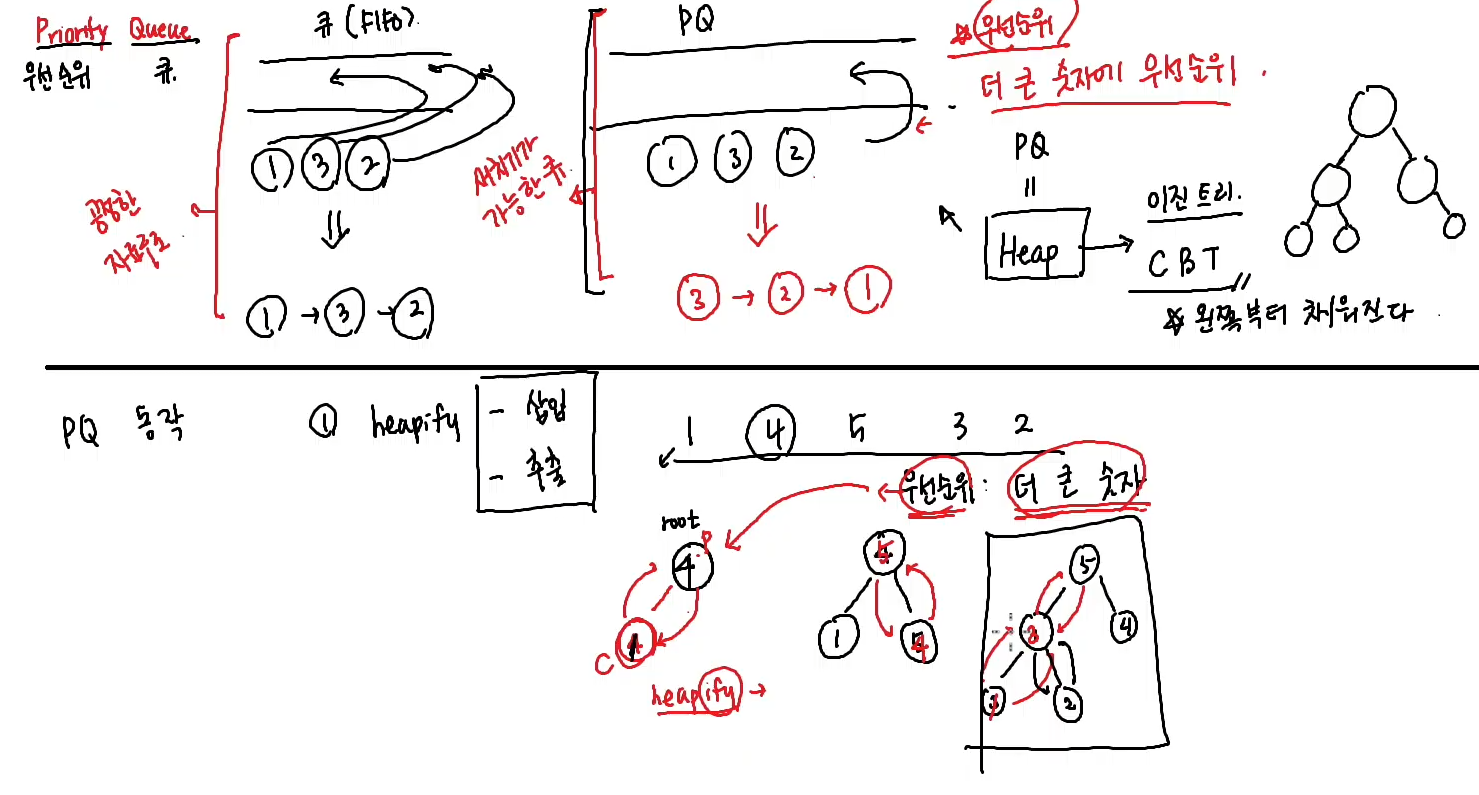 Priority Queue
우선순위 큐.
큐 (FIFO).
① ③ ②
⇓
① → ③ → ②
공정한
자료구조
PQ
① ③ ②
⇓
③ → ② → ①
새치기가
가능한 큐
☆ 우선순위
더 큰 숫자에 우선순위.
PQ
=
Heap →
이진 트리.
CBT
☆ 왼쪽부터 채워진다
PQ 동작
① heapify
- 삽입
- 추출
1 4 5 3 2
우선순위: 더 큰 숫자
root
P
4
1
C
heapify →
5
1 4
5
3 4
1 2